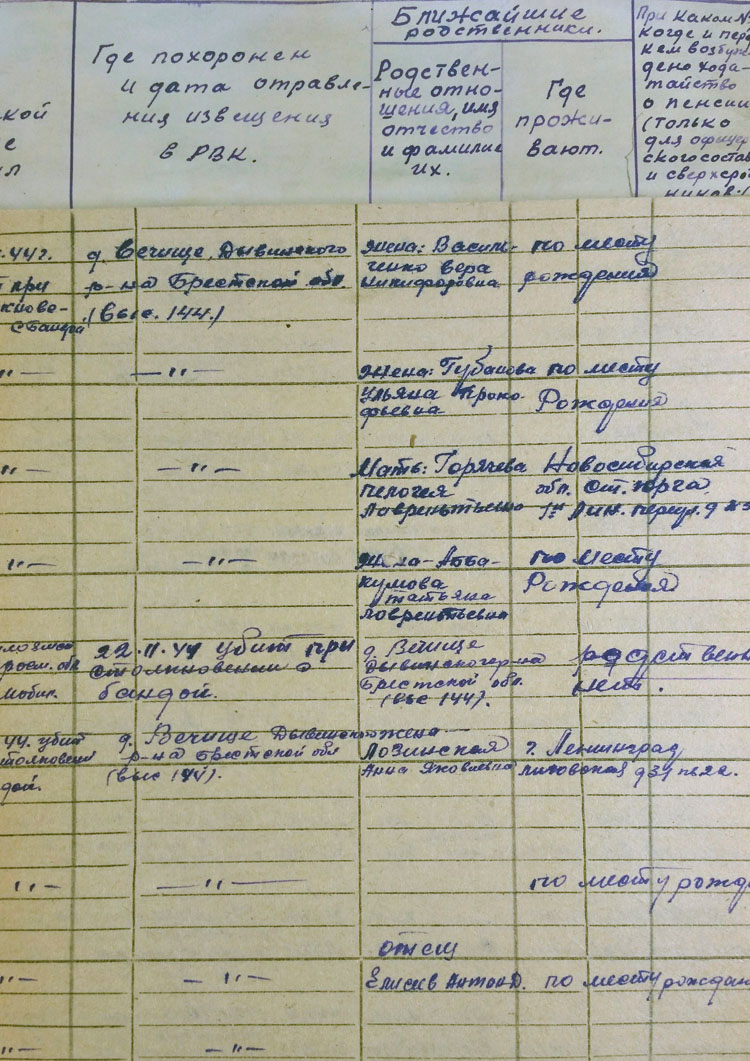 Где похоронен
и дата отправле-
ния извещения
в РВК.
Ближайшие
родственники.
Родствен-
ные отно-
шения, имя
отчество
и фамилие
их.
Где
прожи-
вают.
При каком №
когде и пере
кем возбуж
дено хода-
тайство
о пенсии
(только
для офицер
ского состав
и сверхсро
чников.
ской
е
л
.44г.
при
с бандой
д. Вечище Дывинского
р-на Брестской обл
(выс. 144.)
Жена: Василь-
ченко Вера
Никифоровна
по месту
рождения
— " —
— " —
Жена: Губанова
Ульяна Проко-
фьевна
по месту
Рождения
— " —
— " —
Мать: Горячева
Пелогея
Лаврентьевна
Новосибирская
обл. ст. Юрга
1й Лин. переул. д №3
— " —
— " —
Жена-Абба-
кумова
Татьяна
Лаврентьевна
по месту
Рождения
мобил.
22.11.44 убит при
столкновении с
бандой.
д. Вечище
Дывинского р-на
Брестской обл.
(выс 144).
родствен
нет.
44. убит
столкновени
дой.
д. Вечище Дывинско
р-на Брестской обл
(выс 144).
жена
Лозинская
Анна Яковлевна
г. Ленинград
Лиговская д 31
— " —
— " —
по месту рожд
— " —
— " —
отец
Елисив Антон Д.
по месту рождан
— " —
— " —